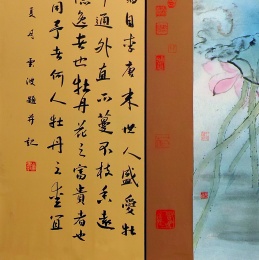 自李唐来世人盛愛牡
中通外直不蔓不枝香遠
逸者也牡丹花之富貴者也
同予者何人牡丹之愛宜
夏月雲波題并記